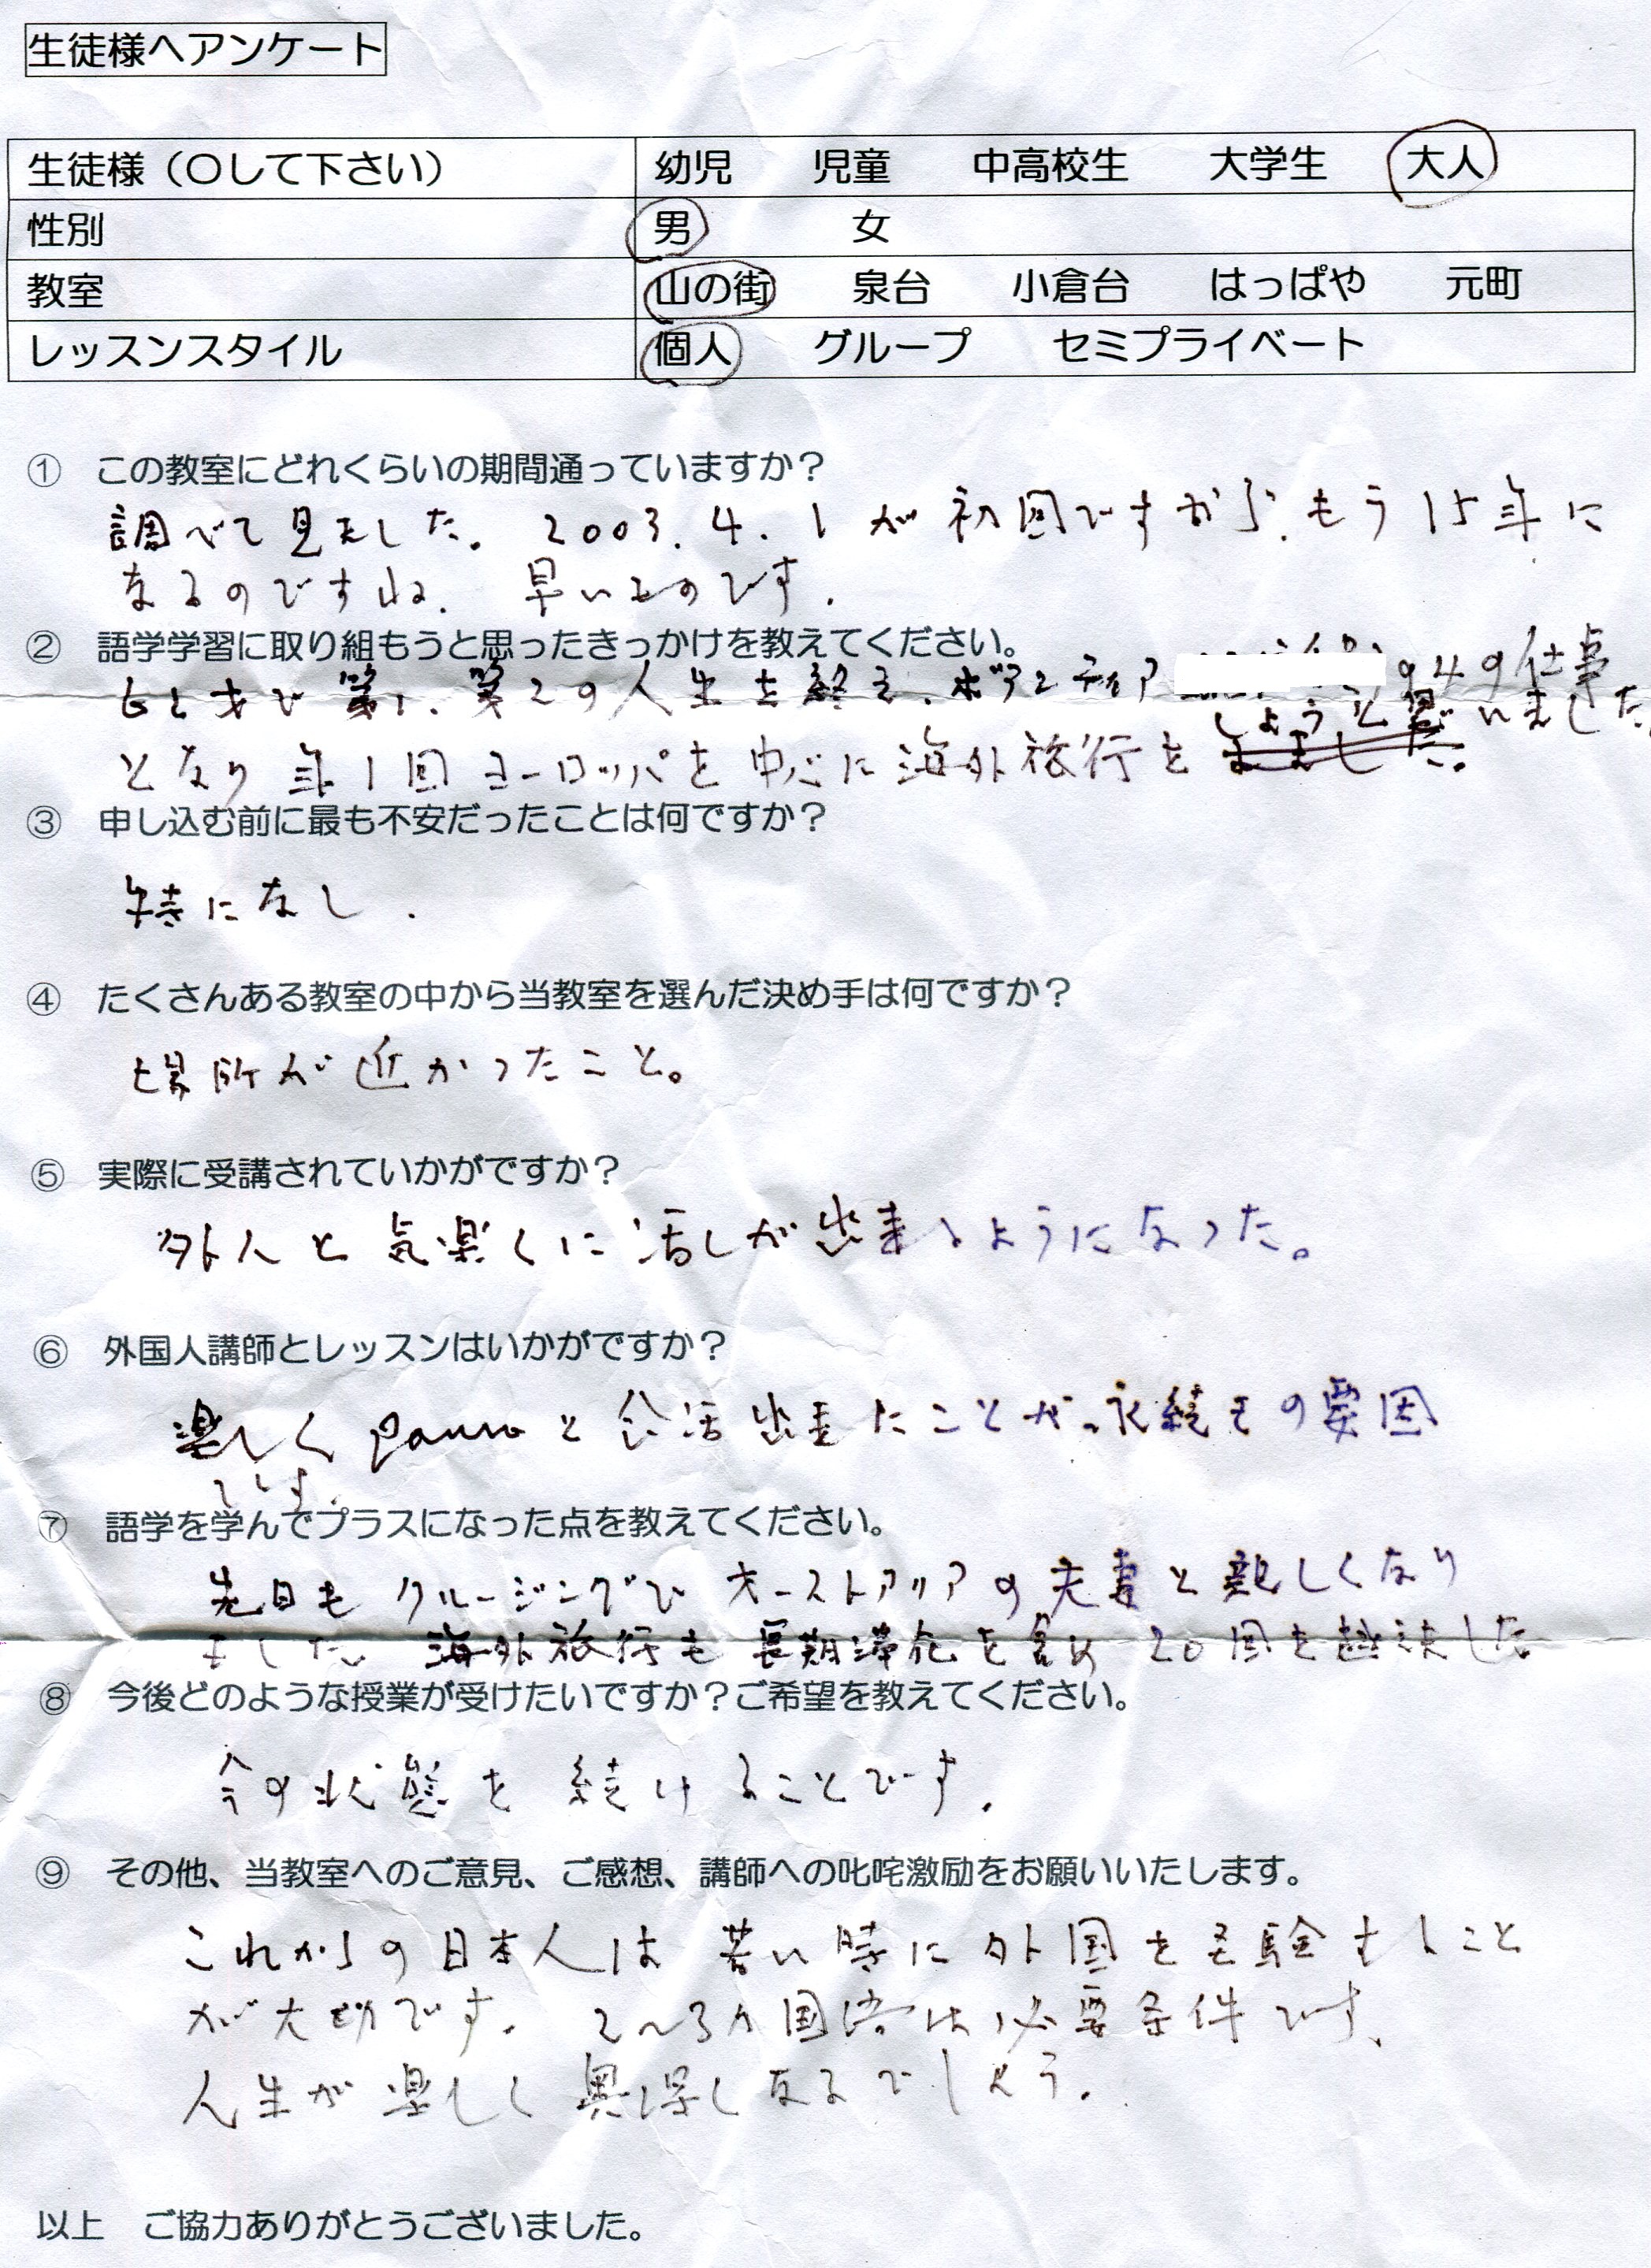 生徒様へアンケート
生徒様（〇して下さい） 幼児 児童 中高校生 大学生 大人
性別 男 女
教室 山の街 泉台 小倉台 はっぱや 元町
レッスンスタイル 個人 グループ セミプライベート
① この教室にどれくらいの期間通っていますか？
調べて見ました。2003.4.1が初回ですから、もう15年に
なるのですね. 早いものです.
② 語学学習に取り組もうと思ったきっかけを教えてください。
才で第1、第2の人生を終え、ボランティア のみの仕事
となり年1回ヨーロッパを中心に海外旅行を しようと思いました
③ 申し込む前に最も不安だったことは何ですか？
特になし.
④ たくさんある教室の中から当教室を選んだ決め手は何ですか？
場所が近かったこと。
⑤ 実際に受講されていかがですか？
外人と気楽くに話しが出来るようになった。
⑥ 外国人講師とレッスンはいかがですか？
楽しく と会話出来たことが、永続きの要因
です.
⑦ 語学を学んでプラスになった点を教えてください。
先日もクルージングでオーストアリアの夫妻と親しくなり
ました。海外旅行も長期滞在を含め20回を越ました
⑧ 今後どのような授業が受けたいですか？ご希望を教えてください。
今の状態を続けることです.
⑨ その他、当教室へのご意見、ご感想、講師への叱咤激励をお願いいたします。
これからの日本人は若い時に外国を こと
が大切です. 2〜3カ国語は必要条件です、
人生が楽しく奥深くなるでしょう.
以上 ご協力ありがとうございました。